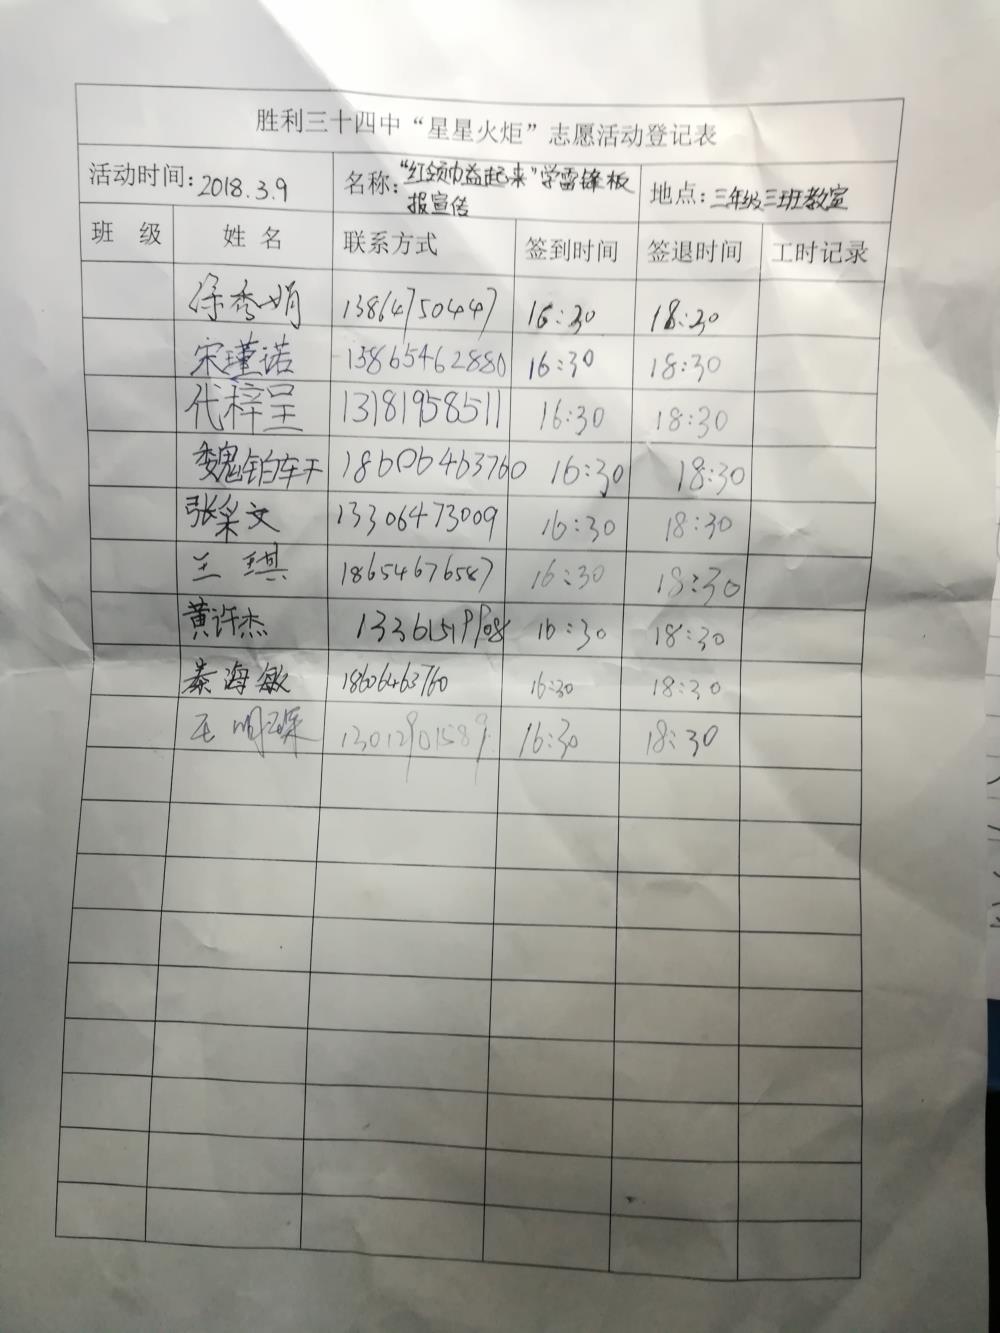 胜利三十四中“星星火炬”志愿活动登记表
活动时间:2018.3.9 名称:“红领巾益起来”学雷锋板 地点:三年级三班教室
报宣传
班 级 姓 名 联系方式 签到时间 签退时间 工时记录
徐秀娟 13864750447 16:30 18:30
宋瑾诺 13865462880 16:30 18:30
代梓呈 13181958511 16:30 18:30
魏铂轩 18606463760 16:30 18:30
张 文 13306473009 16:30 18:30
王 琪 18654676587 16:30 18:30
黄许杰 16:30 18:30
秦海敏 18606463760 16:30 18:30
王明琛 13012901589 16:30 18:30